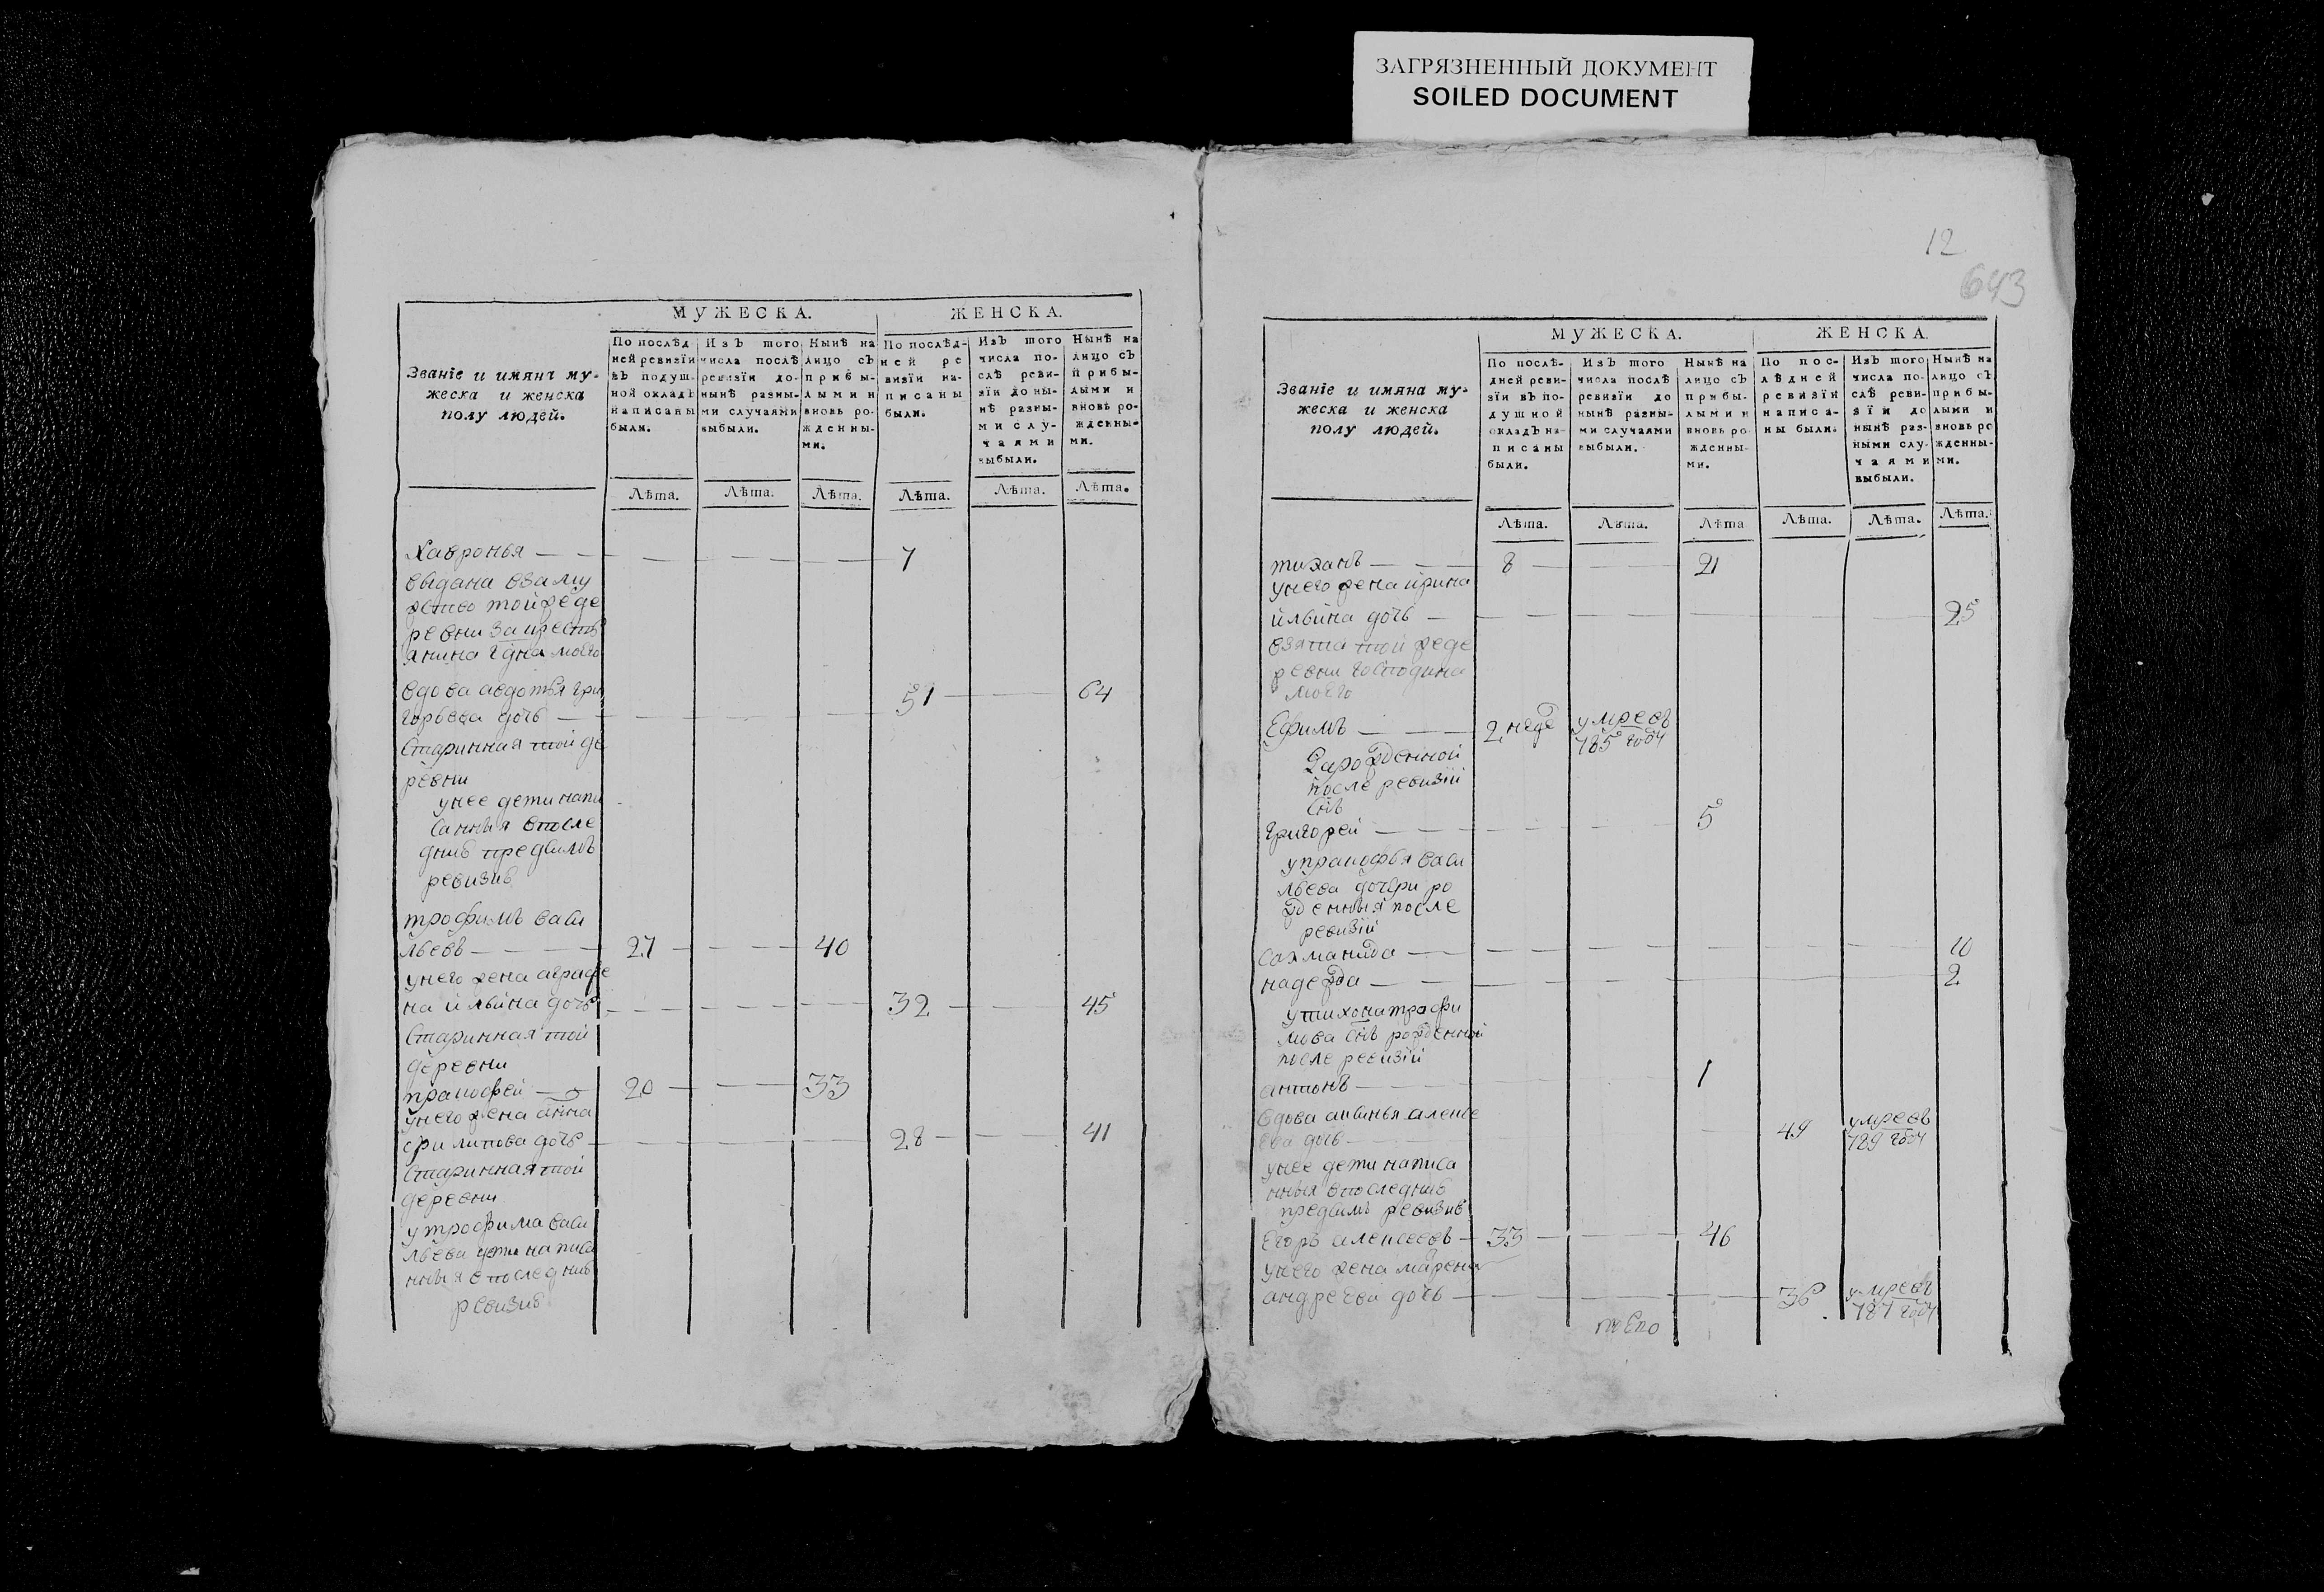 ЗАГРЯЗНЕННЫЙ ДОКУМЕНТ
SOILED DOCUMENT
МУЖЕСКА. ЖЕНСКА.
Званіе и имянa му-
жеска и женска
полу людей.
По послѣд
ней ревизїи
въ подуш-
ной окладъ
написаны
были.
Изъ того
числа послѣ
ревизїи до-
нынѣ разны-
ми случаями
выбыли.
Нынѣ на
лицо съ
прибы-
лыми и
вновь ро-
жденны-
ми.
По послѣд-
ней ре
визїи на-
писаны
были.
Изъ того
числа по-
слѣ реви-
зїи до ны-
нѣ разны-
ми слу-
чаями
выбыли.
Нынѣ на
лицо съ
прибы-
лыми и
вновь ро-
жденны-
ми.
Лѣта. Лѣта. Лѣта. Лѣта. Лѣта. Лѣта.
Хавронья 7
выдана взаму
жство тойжеде
ревни закресть
янина гдна моего
вдова авдотья гри 51 64
горьева дочь
Старинная той де
ревни
унее дети напи
санныя впосле
днѣ предъимъ
ревизиѣ
трофимъ васи
льевъ 27 40
унего жена аграфе
на ильина дочь 32 45
Старинная той
деревни
пракофей 20 33
унего жена анна
филипова дочь 28 41
Старинная той
деревни
утрофима васи
льева дети написа
нныя впоследниѣ
ревизиѣ
12
643
МУЖЕСКА. ЖЕНСКА.
Званіе и имяна му-
жеска и женска
полу людей.
По послѣ-
дней реви-
зїи въ по-
душной
окладъ на-
писаны
были.
Изъ того
числа послѣ
ревизїи до
нынѣ разны-
ми случаями
выбыли.
Нынѣ на
лицо съ
прибы-
лыми и
вновь ро
жденны-
ми.
По пос-
лѣдней
ревизїи
написа-
ны были.
Изъ того
числа по-
слѣ реви-
зїи до
нынѣ раз-
ными слу-
чаями
выбыли.
Нынѣ на
лицо съ
прибы-
лыми и
вновь ро
жденны-
ми.
Лѣта. Лѣта. Лѣта Лѣта. Лѣта. Лѣта.
тиханъ 8 21
унего жена ирина
ильина дочь 25
взята той жеде
ревни господина
моего
Ефимъ 2 неде умревъ
785 году
рожденной
после ревизїи
снъ
григорей 5
упракофья васи
льева дочери ро
жденныя после
ревизїи
Сахманида 10
надежда 2
утихонатрофи
мова снъ рожденной
после ревизїи
антонъ 1
вдова алексе
ева дочь 49 умревъ
789 году
унее дети написа
нныя впоследниѣ
предъимъ ревизиѣ
Егоръ алексеевъ 33 46
унего жена
андреева дочь 36 умревъ
787 году